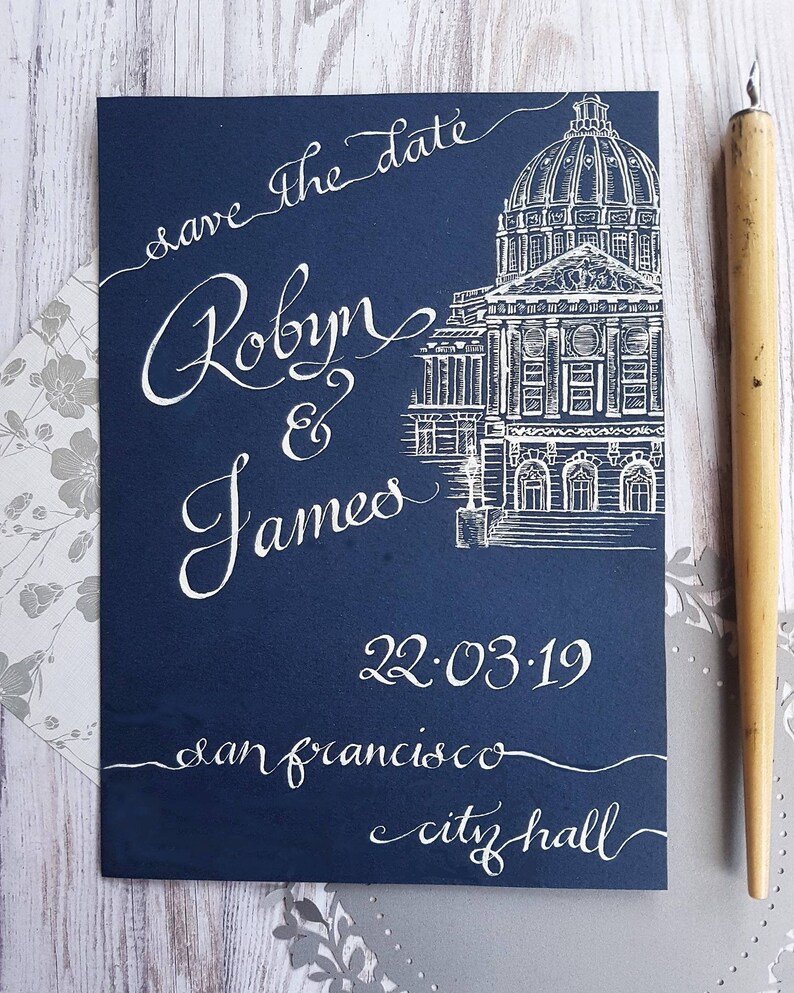 save the date
Robyn
&
James
22·03·19
san francisco
city hall